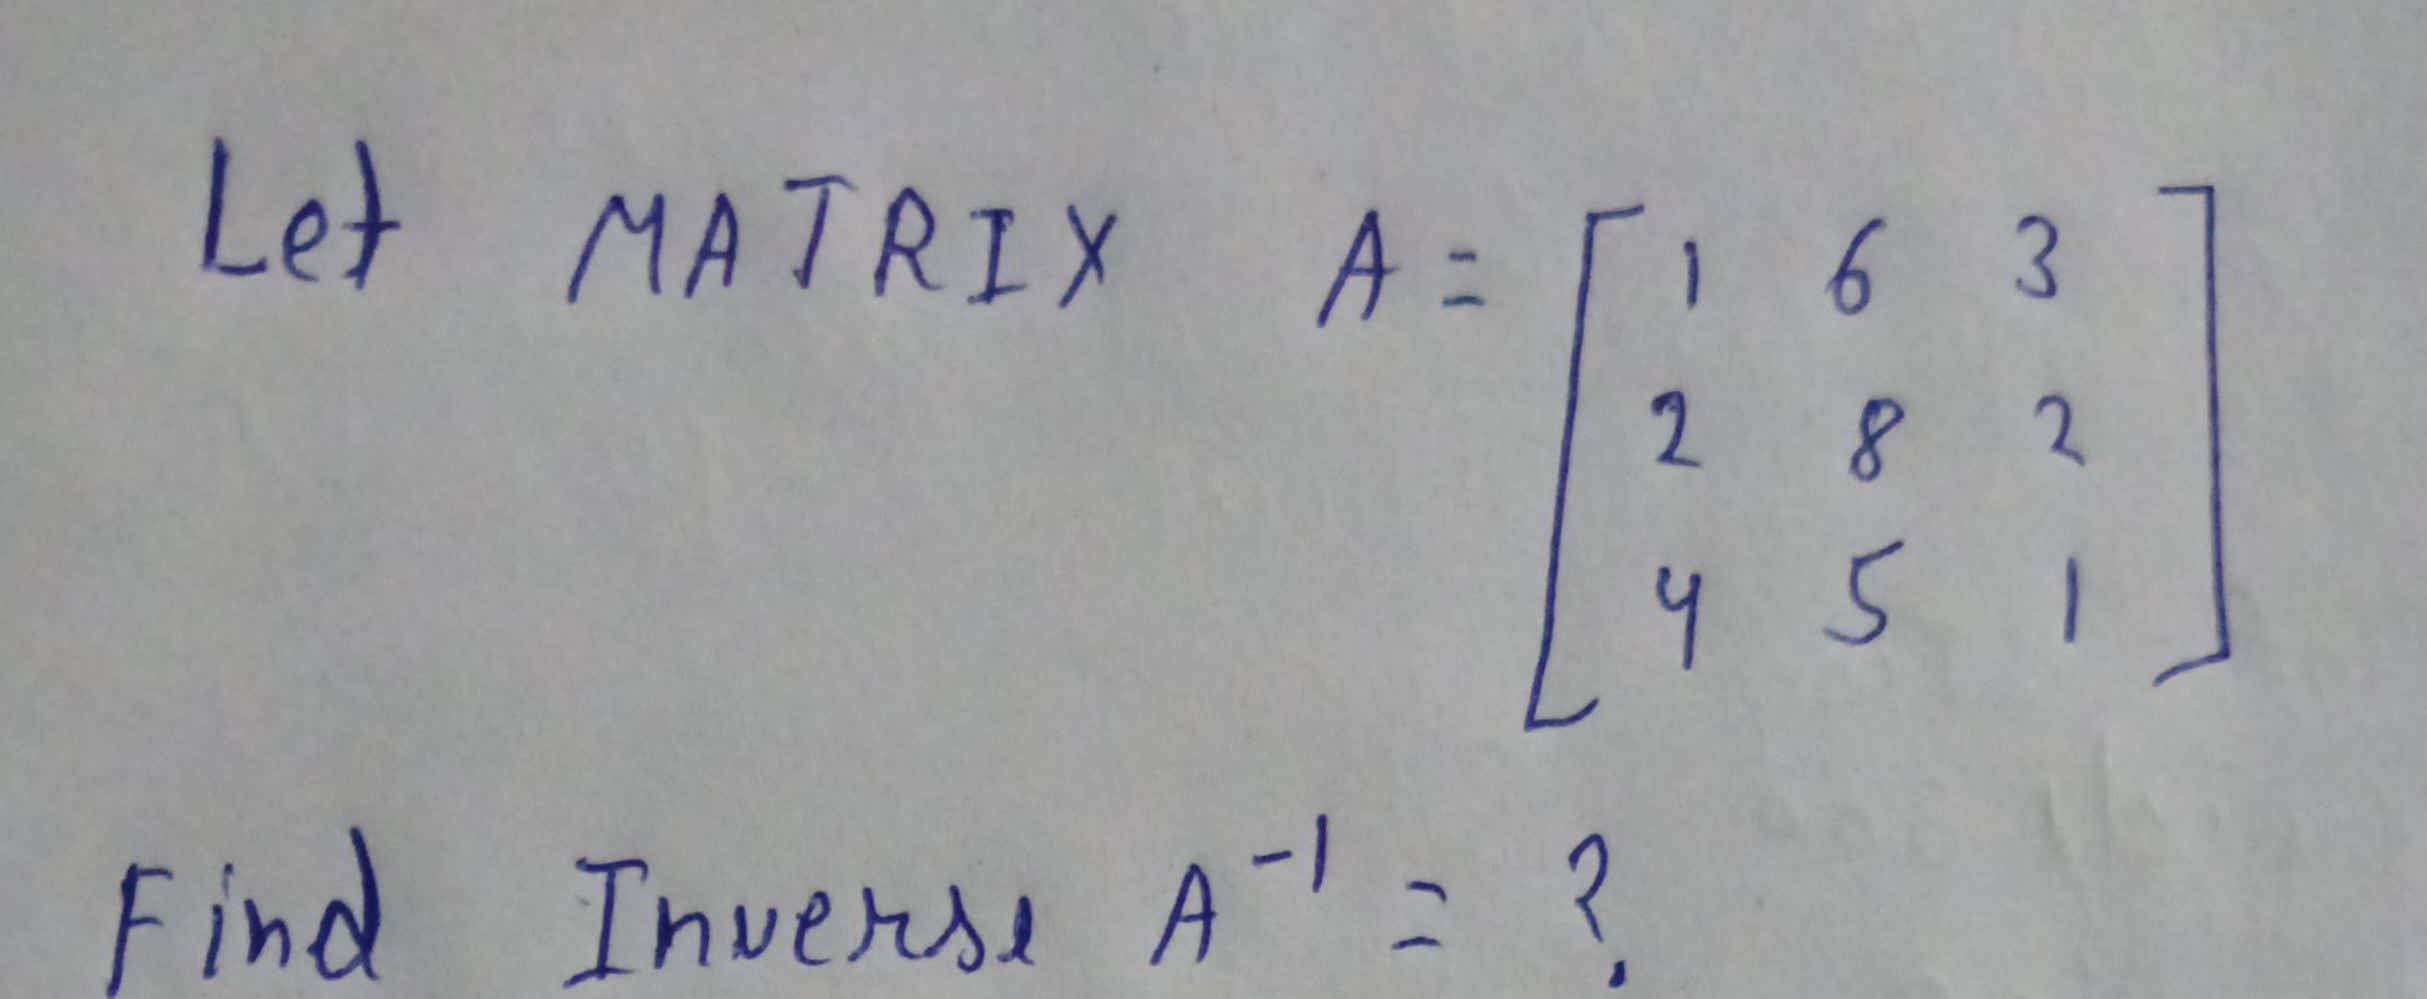 Let MATRIX A = [ 1 6 3
2 8 2
4 5 1 ]
Find Inverse A⁻¹ = ?